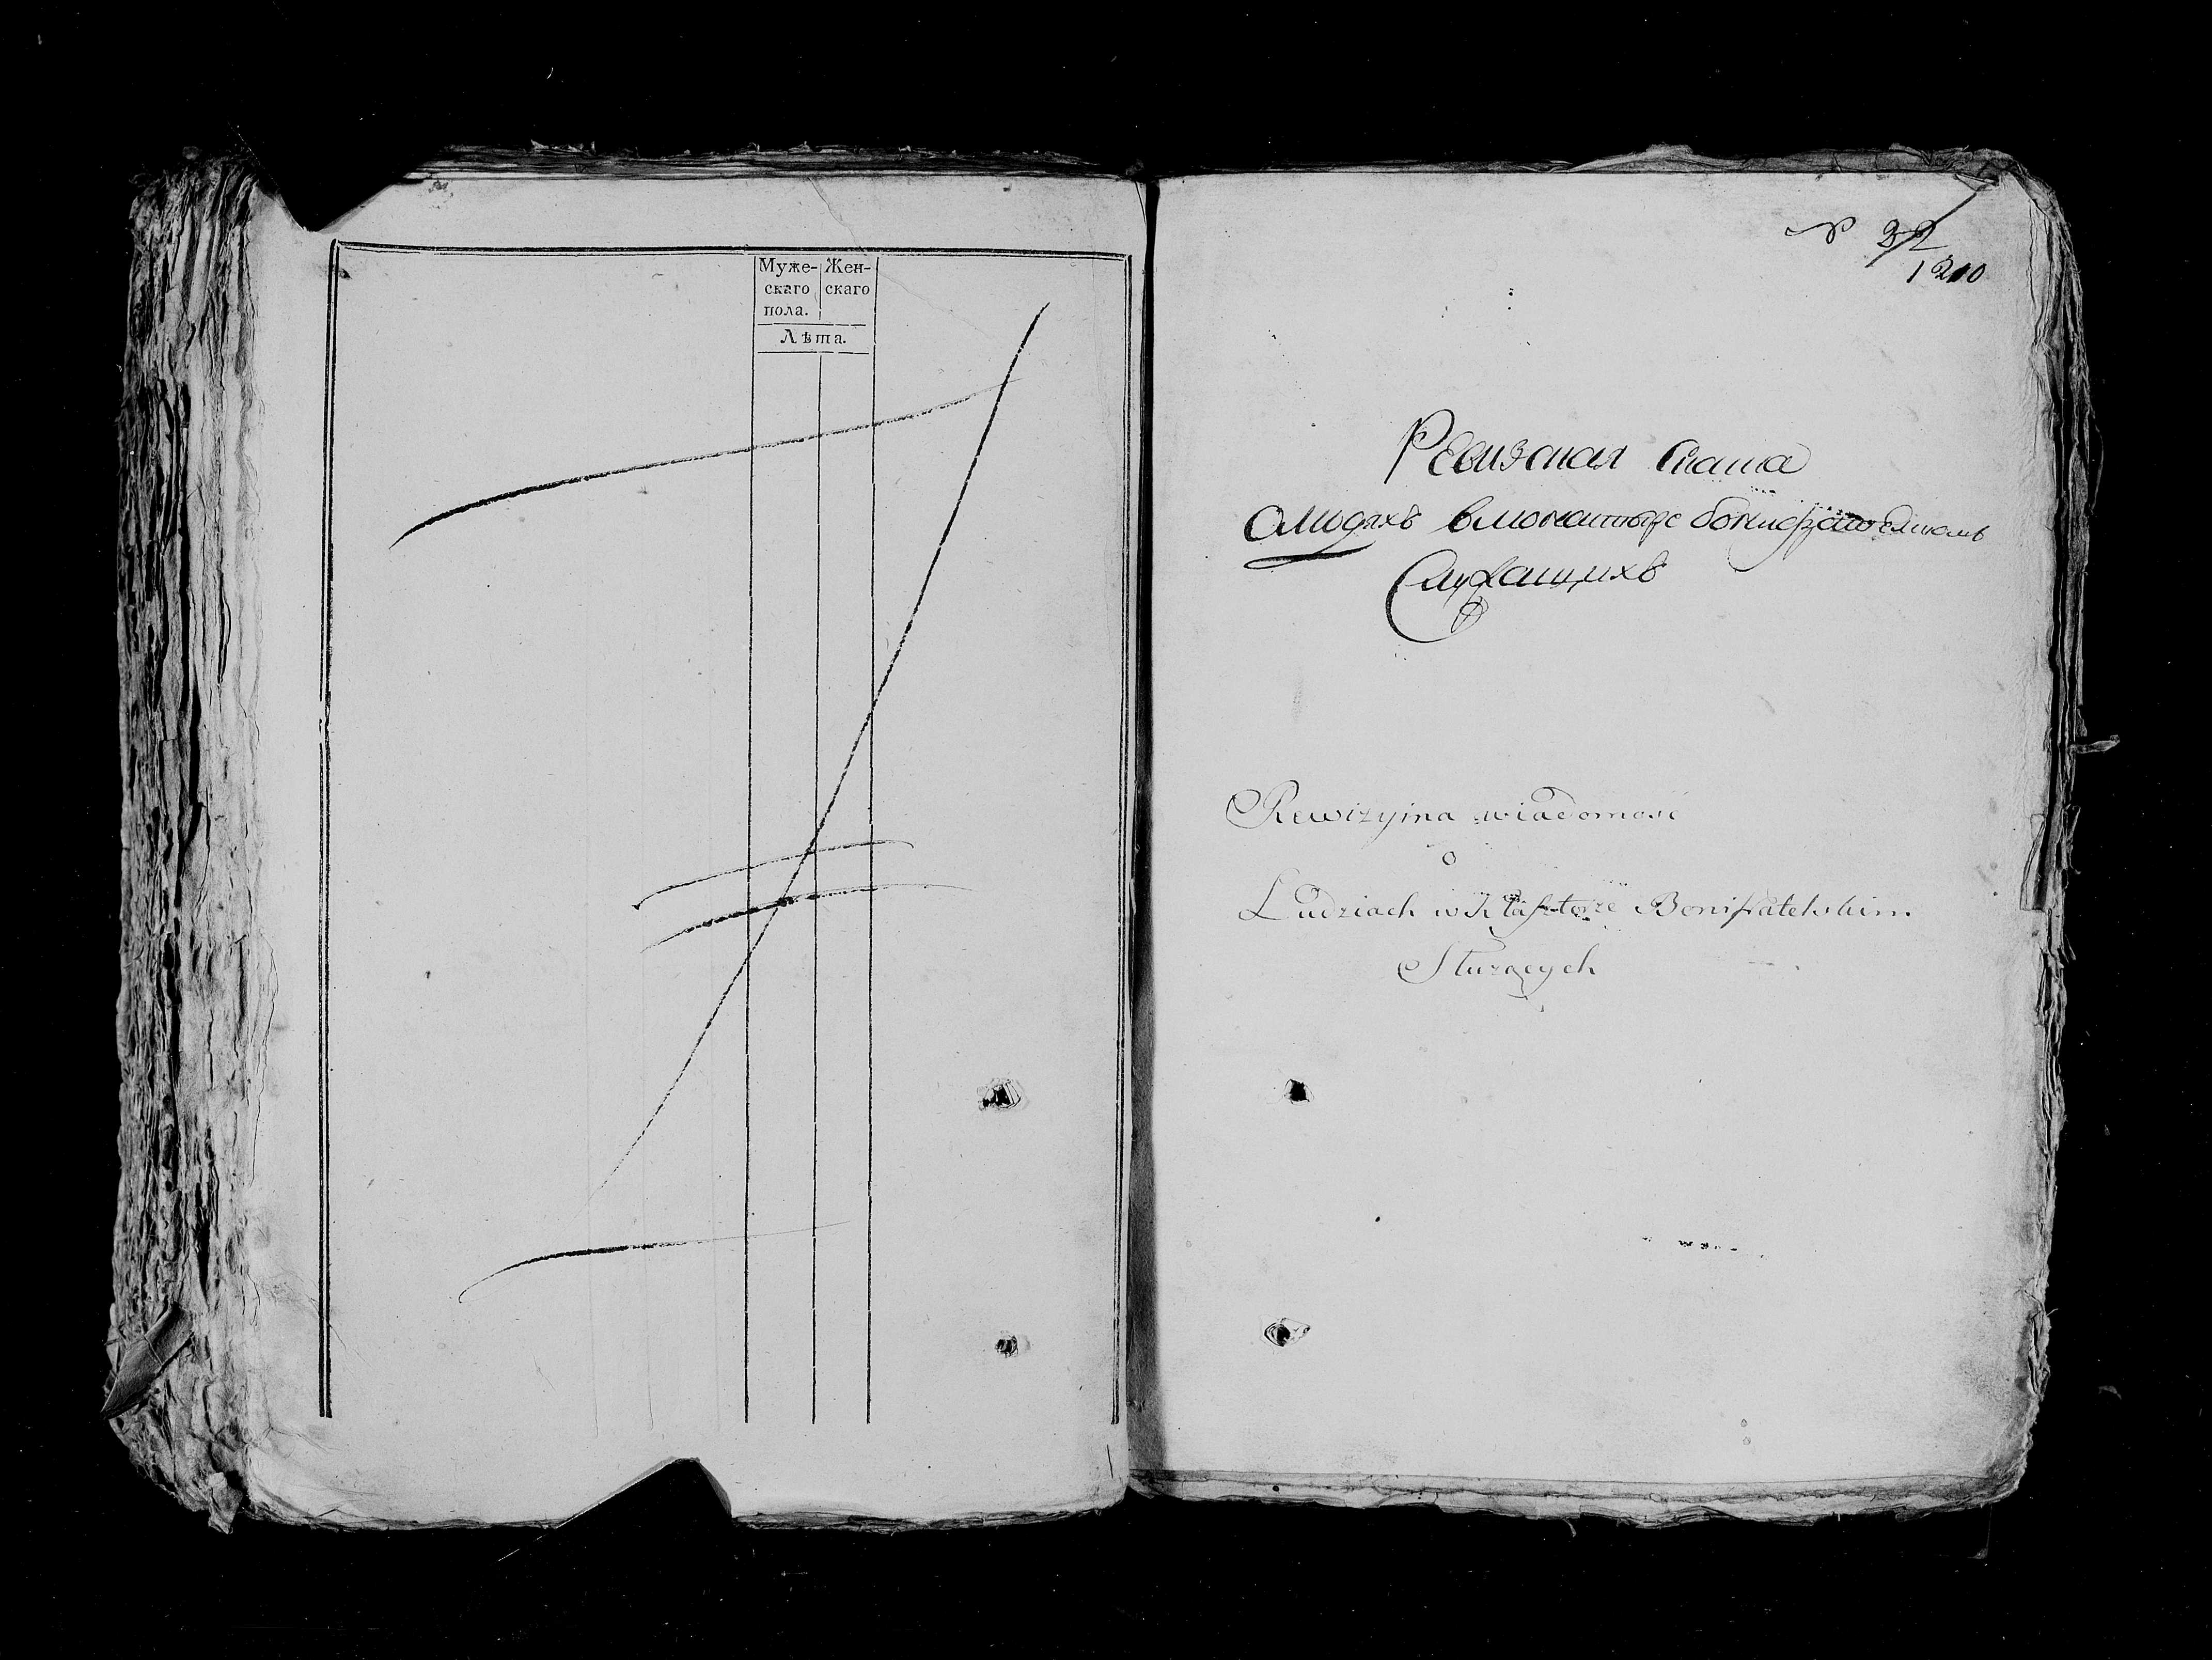 Муже- Жен-
скаго скаго
пола.
Лѣта.
№ 32
1210
Ревизская Сказка
Олюдяхъ вмонастыре бонифрателскомъ
Служащихъ
Rewizyina wiadomość
o
Ludziach w Klasztorze Bonifratelskim
Służących